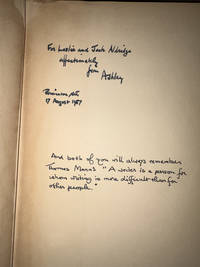 For Leslie and Jack Aldridge
affectionately
from Ashley
17 August 1987
And both of you will always remember
Thomas Mann's "A writer is a person for
whom writing is more difficult than for
other people."